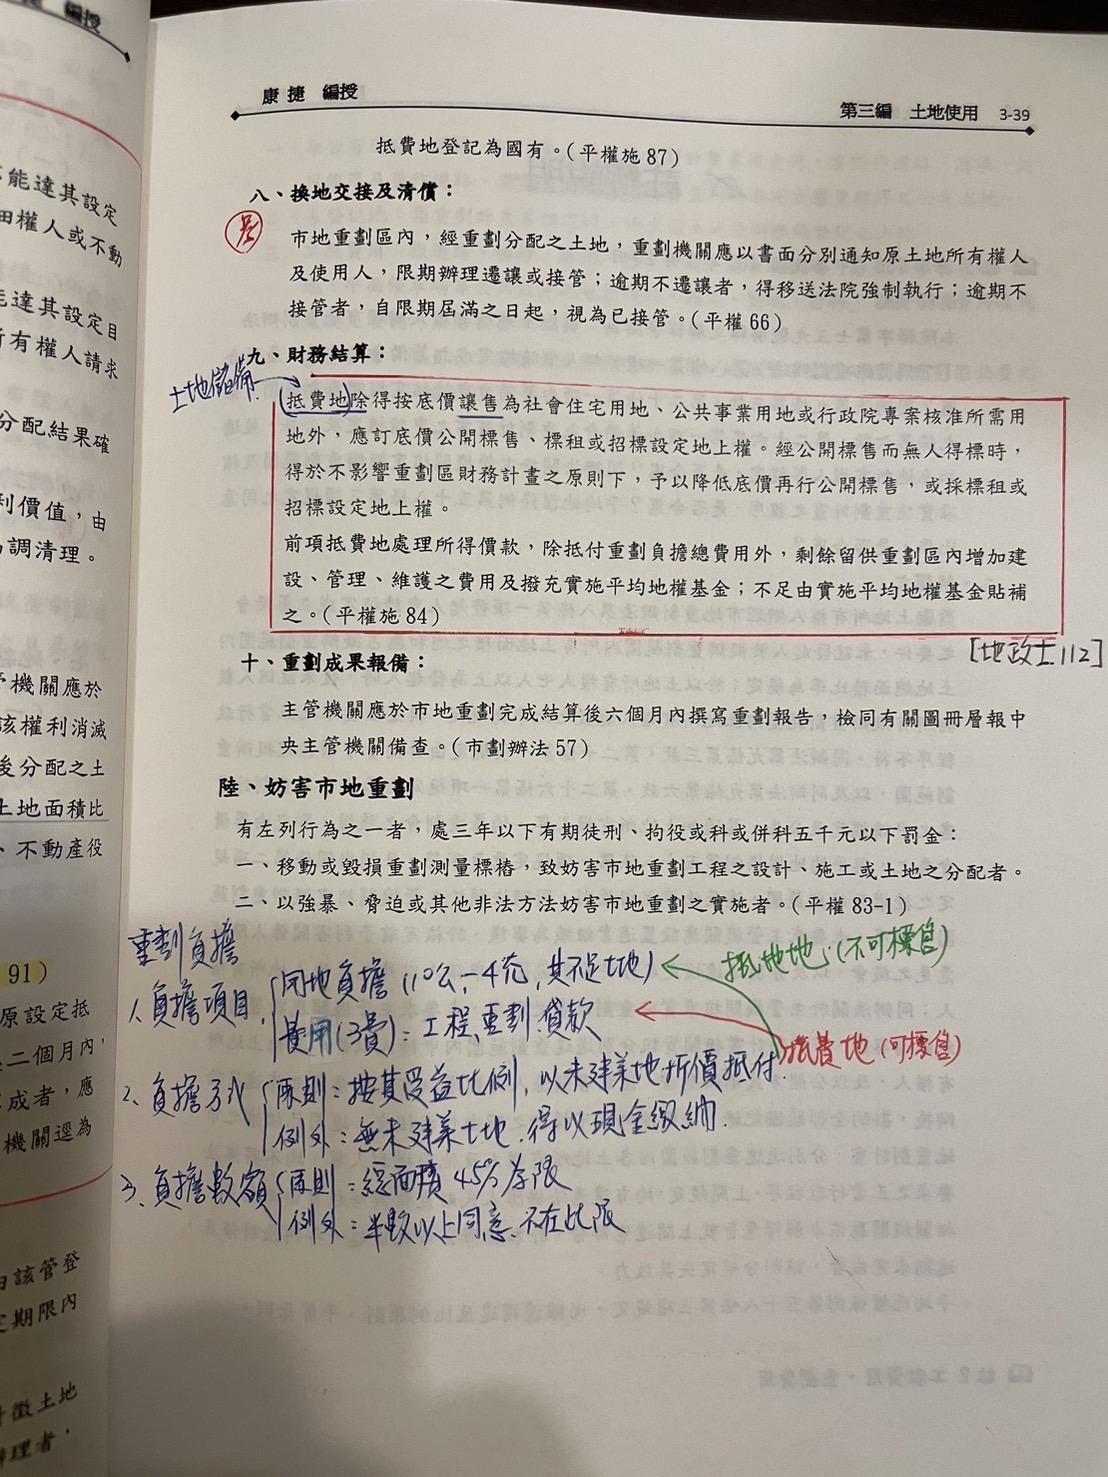 康捷 編授
第三編 土地使用 3-39
抵費地登記為國有。(平權施 87)
八、換地交接及清償：
市地重劃區內，經重劃分配之土地，重劃機關應以書面分別通知原土地所有權人
及使用人，限期辦理遷讓或接管；逾期不遷讓者，得移送法院強制執行；逾期不
接管者，自限期屆滿之日起，視為已接管。(平權 66)
九、財務結算：
土地儲備
抵費地除得按底價讓售為社會住宅用地、公共事業用地或行政院專案核准所需用
地外，應訂底價公開標售、標租或招標設定地上權。經公開標售而無人得標時，
得於不影響重劃區財務計畫之原則下，予以降低底價再行公開標售，或採標租或
招標設定地上權。
前項抵費地處理所得價款，除抵付重劃負擔總費用外，剩餘留供重劃區內增加建
設、管理、維護之費用及撥充實施平均地權基金；不足由實施平均地權基金貼補
之。(平權施 84)
[地政士112]
十、重劃成果報備：
主管機關應於市地重劃完成結算後六個月內撰寫重劃報告，檢同有關圖冊層報中
央主管機關備查。(市劃辦法 57)
陸、妨害市地重劃
有左列行為之一者，處三年以下有期徒刑、拘役或科或併科五千元以下罰金：
一、移動或毀損重劃測量標樁，致妨害市地重劃工程之設計、施工或土地之分配者。
二、以強暴、脅迫或其他非法方法妨害市地重劃之實施者。(平權 83-1)
重劃負擔
1、負擔項目
用地負擔(10公－4充,其不足土地)
抵地地：(不可標售)
費用(3費)：工程、重劃、貸款
抵費地(可標售)
2、負擔方式
原則：按其受益比例，以未建築地折價抵付.
例外：無未建築土地.得以現金繳納.
3、負擔數額
原則：總面積45%為限
例外：半數以上同意、不在此限
能達其設定
田權人或不動
能達其設定目
所有權人請求
分配結果確
利價值，由
調清理。
機關應於
該權利消滅
後分配之土
土地面積比
、不動產役
91)
原設定抵
二個月內，
成者，應
機關逕為
由該管登
定期限內
徵土地
辦理者，